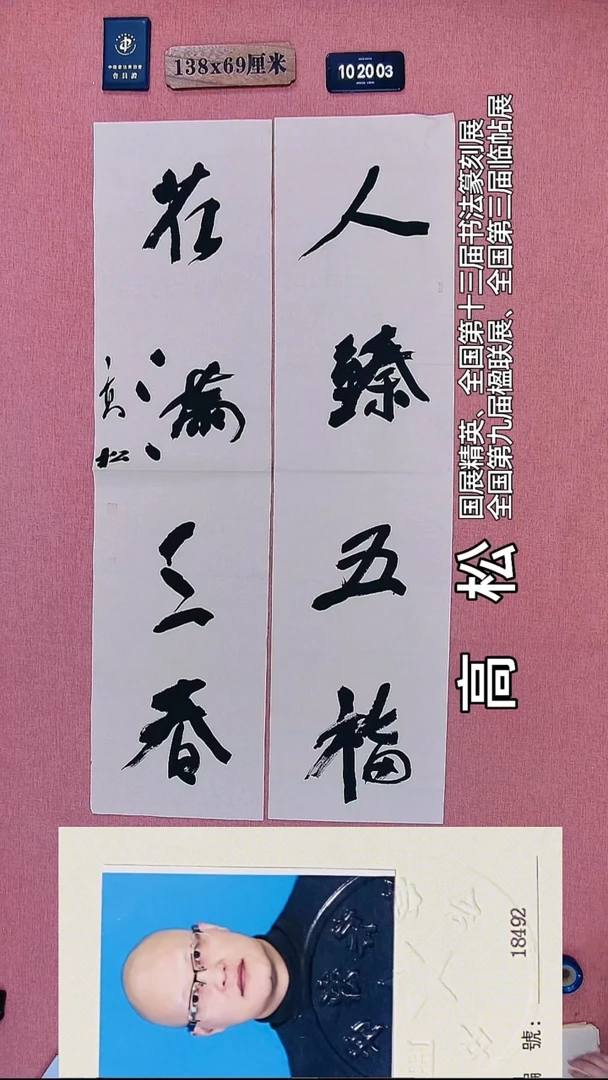 會員證
138x69厘米
10 20 03
人臻五福
花滿三春
高松
国展精英、全国第十三届书法篆刻展
全国第九届楹联展、全国第三届临帖展
高 松
號: 18492